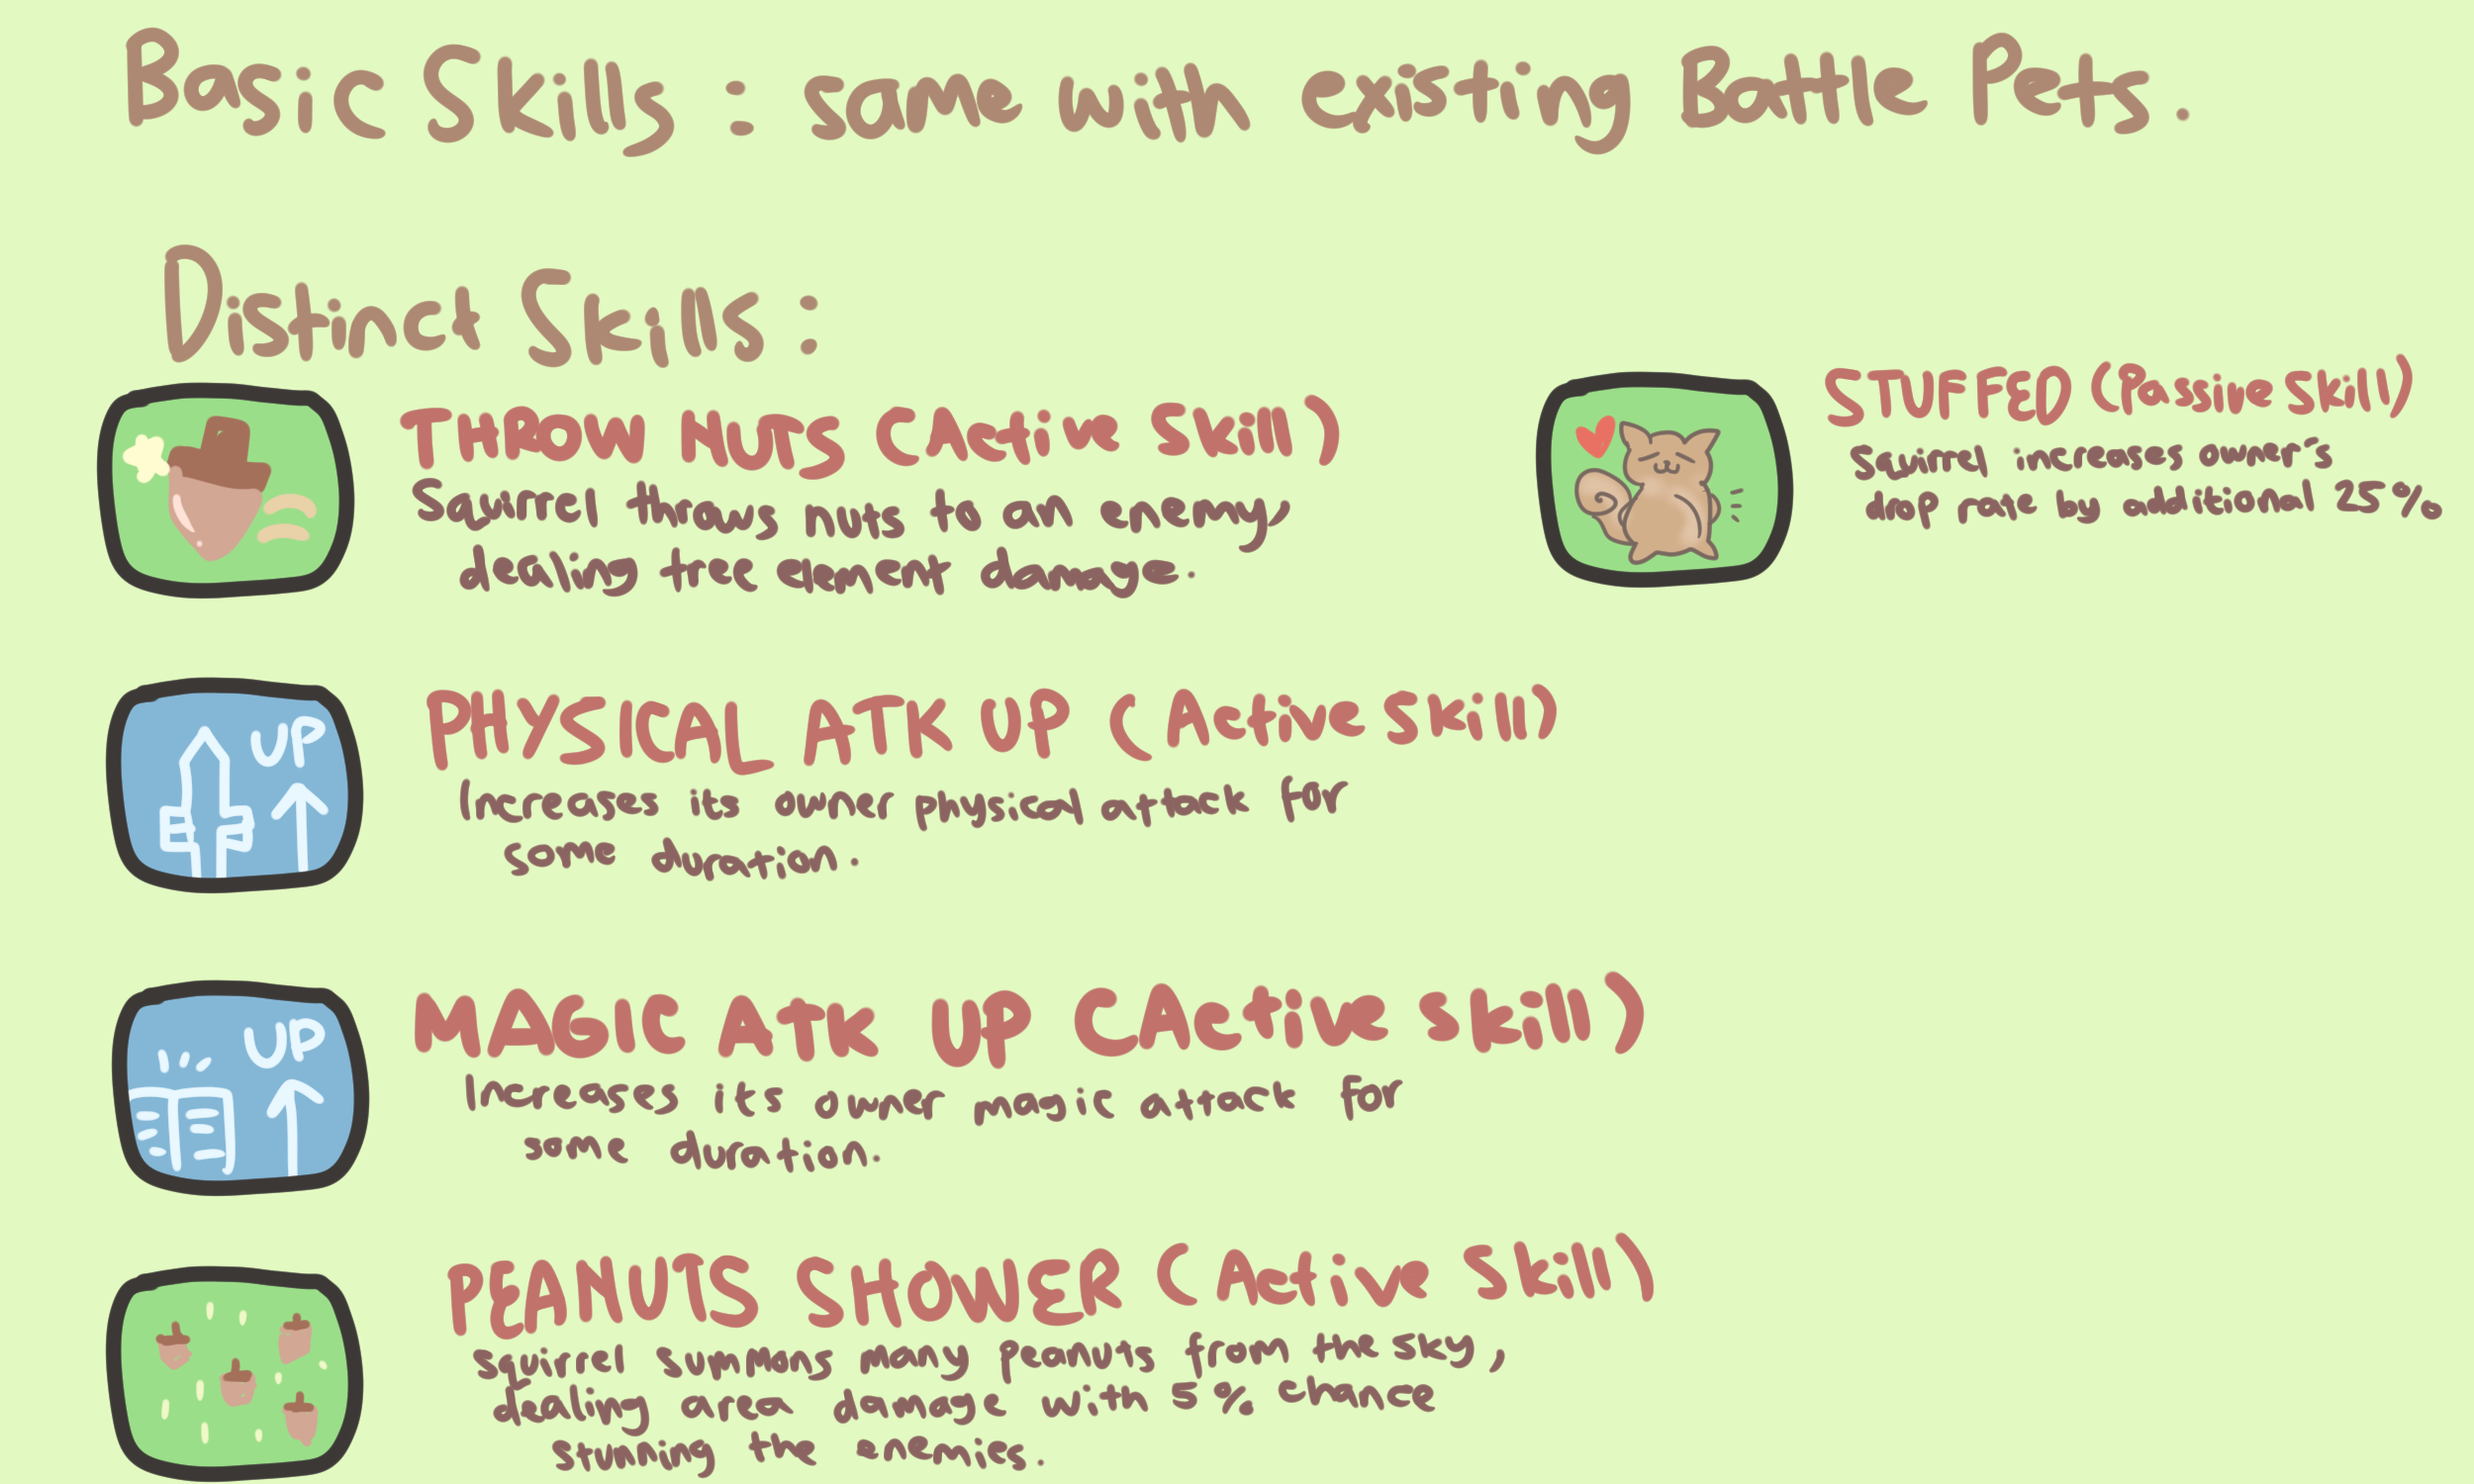 Basic Skills : same with existing Battle Pets.
Distinct Skills :
THROW NUTS (Active Skill)
Squirrel throws nuts to an enemy,
dealing tree element damage.
STUFFED (Passive Skill)
Squirrel increases owner's
drop rate by additional 25%
UP
PHYSICAL ATK UP (Active Skill)
Increases its owner physical attack for
some duration.
UP
MAGIC ATK UP (Active Skill)
Increases its owner magic attack for
some duration.
PEANUTS SHOWER (Active Skill)
Squirrel summons many peanuts from the sky,
dealing area damage with 5% chance
stunning the enemies.